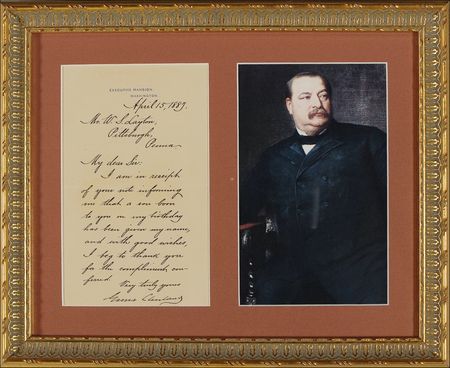 EXECUTIVE MANSION
WASHINGTON
April 15, 1889.
Mr. W. S. Layton,
Pittsburgh,
Penna
My dear Sir:
I am in receipt
of your note informing
me that a son born
to you on my birthday
has been given my name,
and with good wishes,
I beg to thank you
for the compliment con-
ferred.
Very truly yours
Grover Cleveland